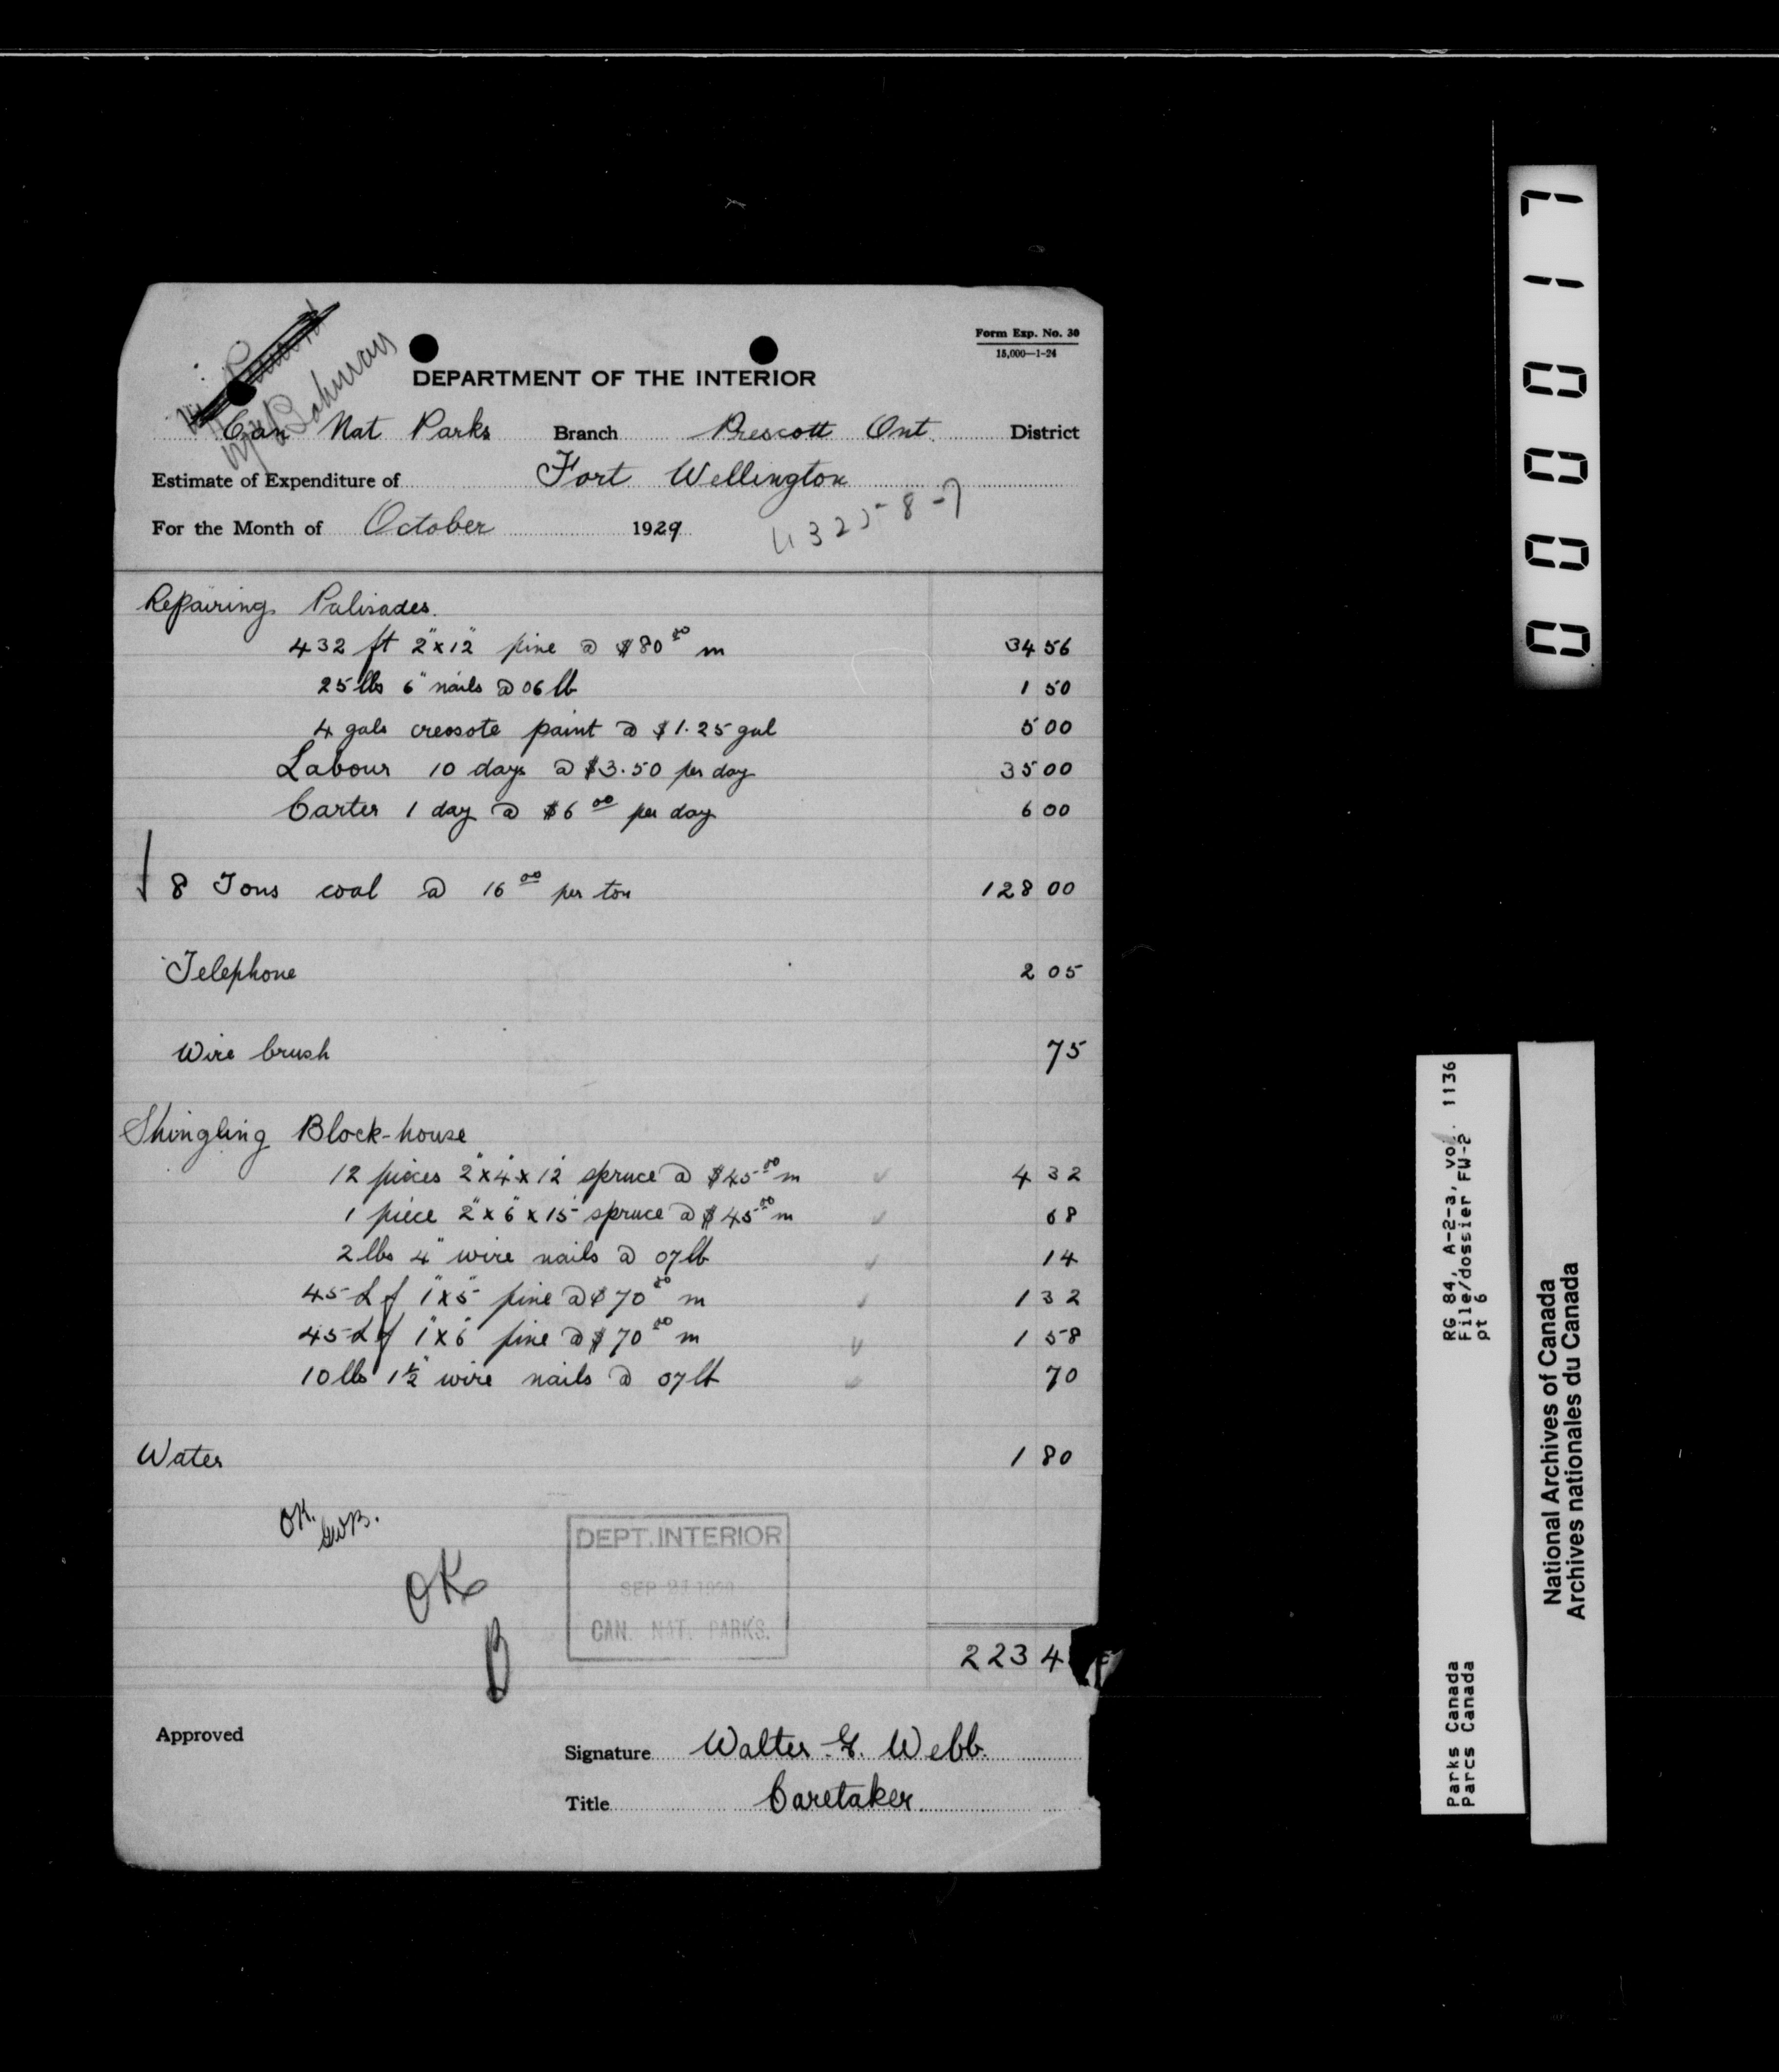 Form Exp. No. 30
15,000—1-24
DEPARTMENT OF THE INTERIOR
Can Nat Parks Branch Prescott Ont. District
Estimate of Expenditure of Fort Wellington
For the Month of October 1929
Repairing Palisades.
432 ft 2"x12" pine @ $80 00 m 34 56
25 lbs 6" nails @ 06 lb 1 50
4 gals creosote paint @ $1.25 gal 5 00
Labour 10 days @ $3.50 per day 35 00
Carter 1 day @ $6 00 per day 6 00
8 Tons coal @ 16 00 per ton 128 00
Telephone 2 05
Wire brush 75
Shingling Block-house
12 pieces 2"x4"x12' spruce @ $45 00 m 4 32
1 piece 2"x6"x15' spruce @ $45 00 m 68
2 lbs 4" wire nails @ 07 lb 14
45 L f 1"x5" pine @ $70 00 m 1 32
45 L f 1"x6" pine @ $70 00 m 1 58
10 lbs 1½" wire nails @ 07 lb 70
Water 1 80
OK.
GWB.
OK
B
DEPT. INTERIOR
SEP 27
CAN. NAT. PARKS.
223 4
Approved
Signature Walter G. Webb.
Title Caretaker
000017
RG 84, A-2-3, vol. 1136
File/dossier FW-2
pt 6
Parks Canada
Parcs Canada
National Archives of Canada
Archives nationales du Canada